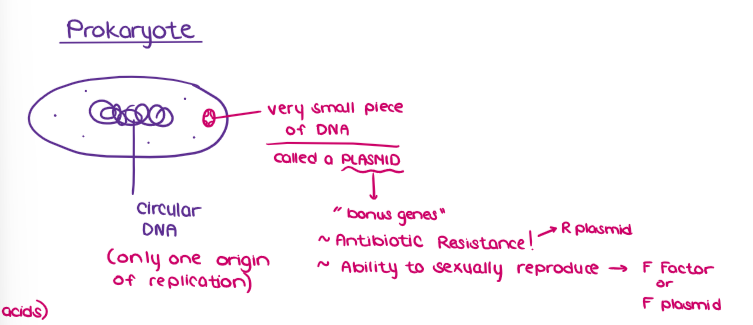 Prokaryote
very small piece
of DNA
called a PLASMID
"bonus genes"
~ Antibiotic Resistance! → R plasmid
~ Ability to sexually reproduce → F Factor
or
F plasmid
circular
DNA
(only one origin
of replication)
acids)